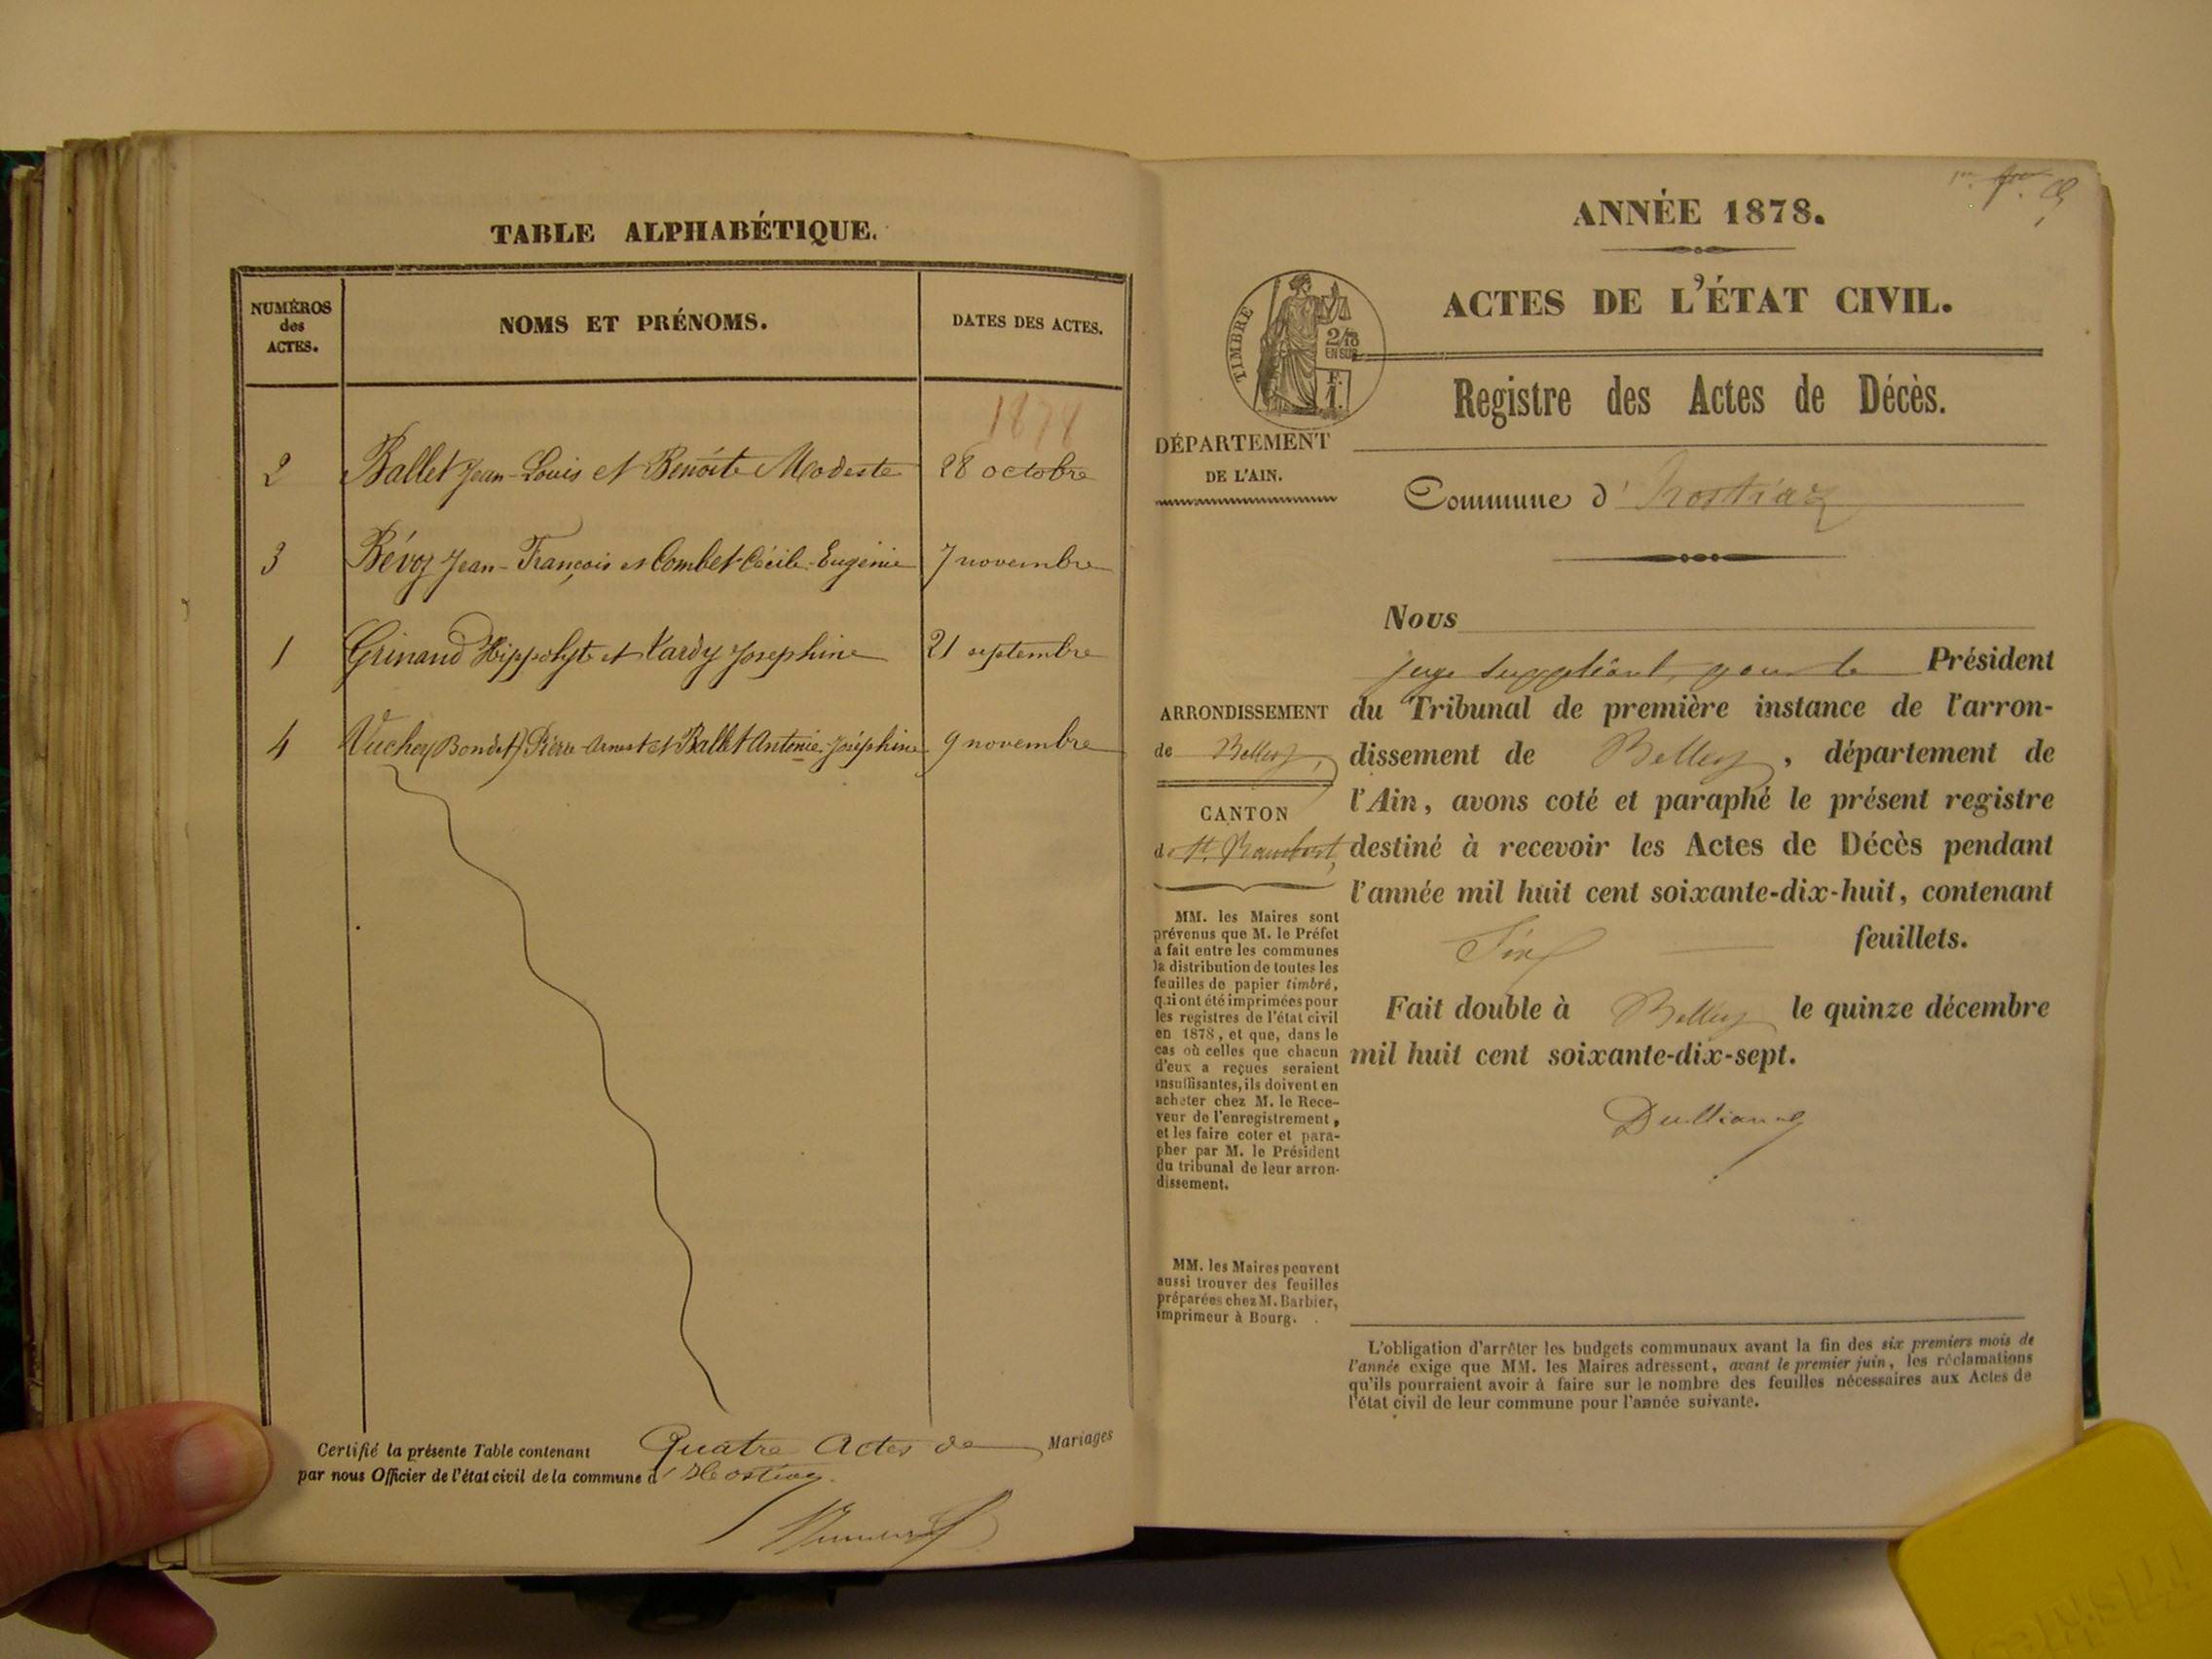 TABLE ALPHABÉTIQUE.
NUMÉROS
des
ACTES.
NOMS ET PRÉNOMS.
DATES DES ACTES.
1878
2 Ballet Jean-Louis et Benoîte Modeste 28 octobre
3 Bévoz Jean-François et Combet Cécile-Eugénie 7 novembre
1 Grinand Hippolyte et Tardy Josephine 21 septembre
4 Vuchey (Bondet) Pierre Arnest et Ballet Antonie-Joséphine 9 novembre
Certifié la présente Table contenant Quatre Actes de Mariages
par nous Officier de l'état civil de la commune d'Hostiaz.
ANNÉE 1878.
ACTES DE L'ÉTAT CIVIL.
TIMBRE
2/10
EN SUS
F.
1.
Registre des Actes de Décès.
DÉPARTEMENT
DE L'AIN.
Commune d'Hostiaz
Nous
juge suppléant, pour le Président
du Tribunal de première instance de l'arron-
dissement de Belley, département de
l'Ain, avons coté et paraphé le présent registre
destiné à recevoir les Actes de Décès pendant
l'année mil huit cent soixante-dix-huit, contenant
feuillets.
Fait double à Belley le quinze décembre
mil huit cent soixante-dix-sept.
ARRONDISSEMENT
de Belley,
CANTON
de St. Rambert,
MM. les Maires sont
prévenus que M. le Préfet
a fait entre les communes
la distribution de toutes les
feuilles de papier timbré,
qui ont été imprimées pour
les registres de l'état civil
en 1878, et que, dans le
cas où celles que chacun
d'eux a reçues seraient
insuffisantes, ils doivent en
acheter chez M. le Rece-
veur de l'enregistrement,
et les faire coter et para-
pher par M. le Président
du tribunal de leur arron-
dissement.
MM. les Maires peuvent
aussi trouver des feuilles
préparées chez M. Barbier,
imprimeur à Bourg.
L'obligation d'arrêter les budgets communaux avant la fin des six premiers mois de
l'année exige que MM. les Maires adressent, avant le premier juin, les réclamations
qu'ils pourraient avoir à faire sur le nombre des feuilles nécessaires aux Actes de
l'état civil de leur commune pour l'année suivante.